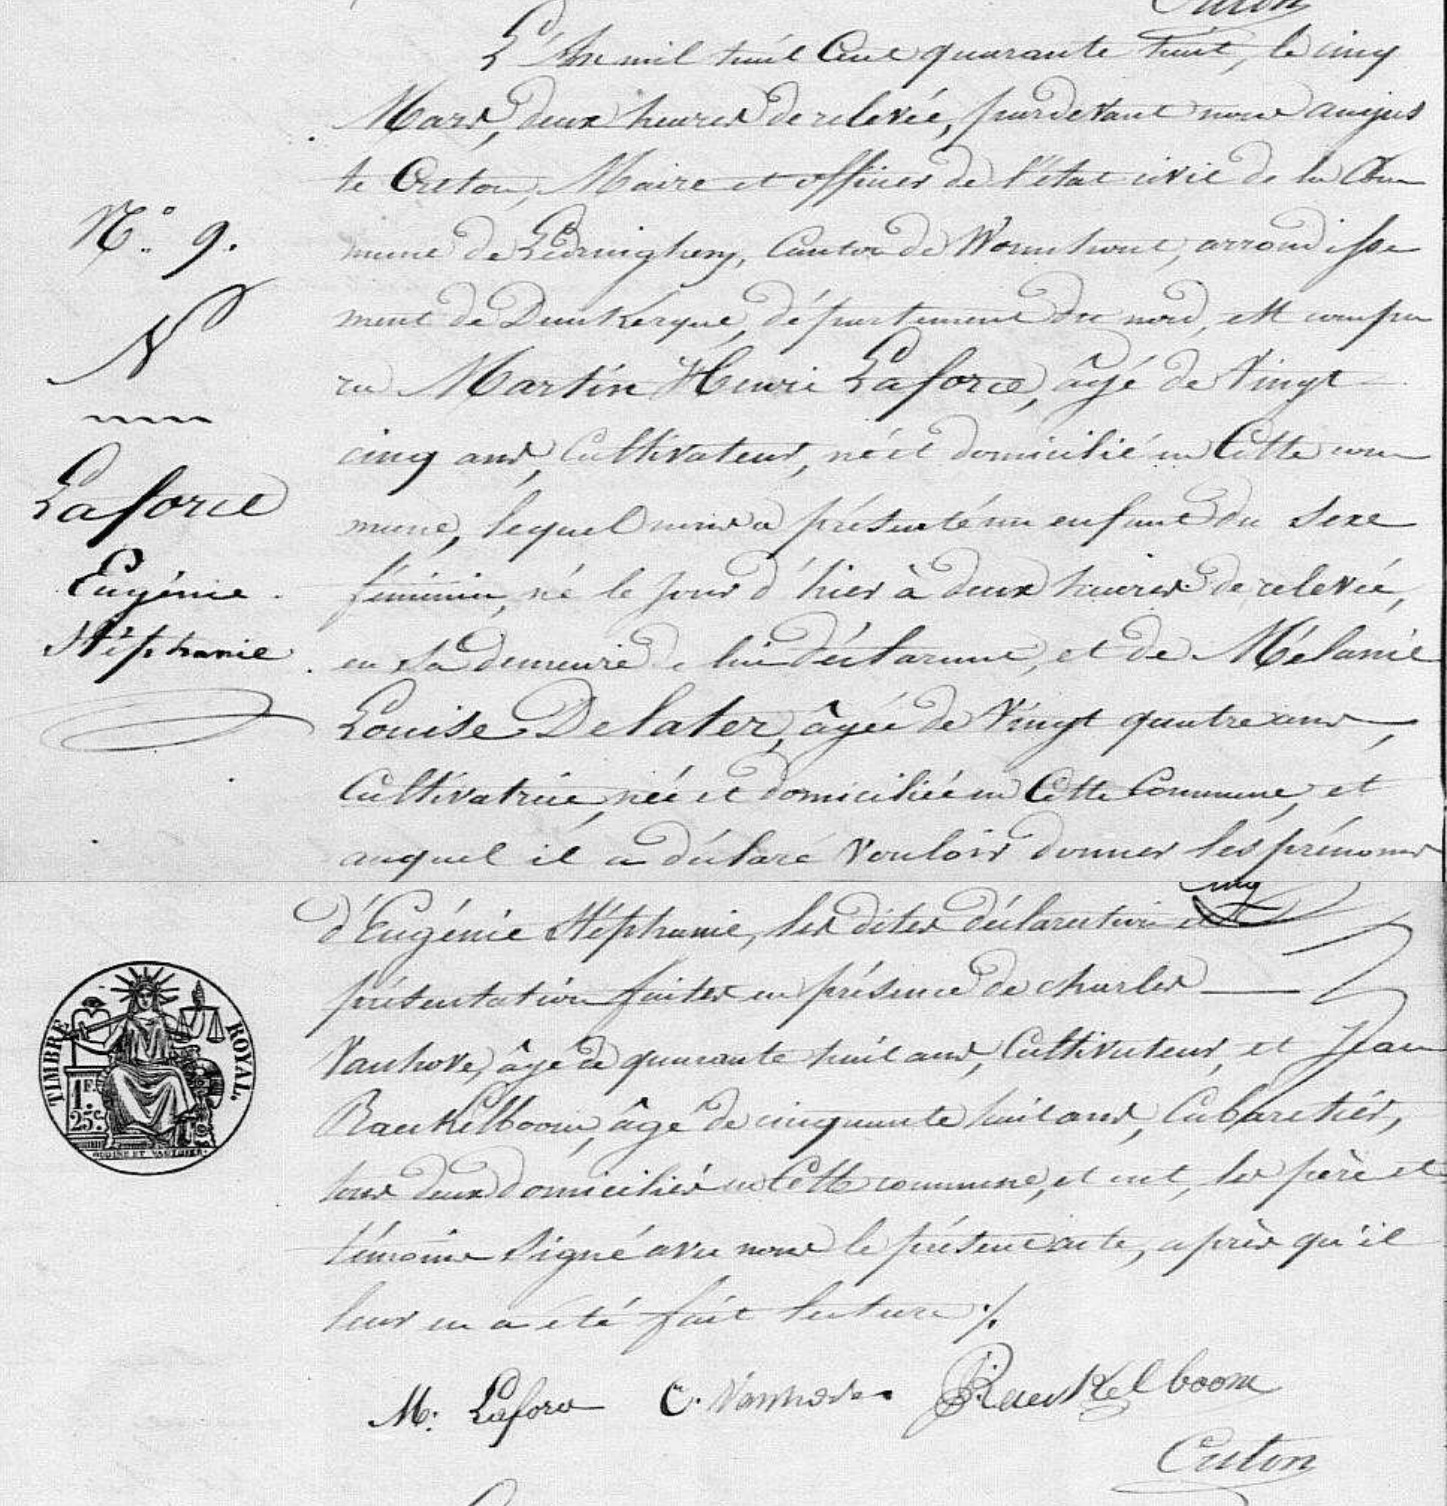 L'An mil huit Cent quarante huit, le cinq
Mars, deux heures de relevée, pardevant nous augus
te Outon, Maire et officier de l'état civil de la Com
mune de Ledringhem, Canton de Wormhout, arrondisse
ment de Dunkerque, département du nord, est compa
ru Martin Henri Laforce, âgé de Vingt
cinq ans, Cultivateur, né et domicilié en Cette com
mune, lequel nous a présenté un enfant du sexe
féminin, né le jour d'hier à deux heures de relevée,
en sa demeure de lui déclarant, et de Mélanie
Louise Delater, âgée de Vingt quatre ans,
Cultivatrice, née et domiciliée en Cette Commune, et
auquel il a déclaré Vouloir donner les prénoms
N.° 9.
N
Laforce
Eugénie
Stéphanie
d'Eugénie Stéphanie, les dites déclaration et
présentation faites en présence de charles
Vanhove, âgé de quarante huit ans, Cultivateur, et Jean
Raeckelboom, âgé de cinquante huit ans, Cabaretier,
tous deux domiciliés en Cette commune, et ont, les père et
témoins Signé avec nous le présent acte, après qu'il
leur en a été fait lecture ./.
TIMBRE ROYAL.
1 F.
25 c.
M. Laforce C. Vanhove Raeckelboom